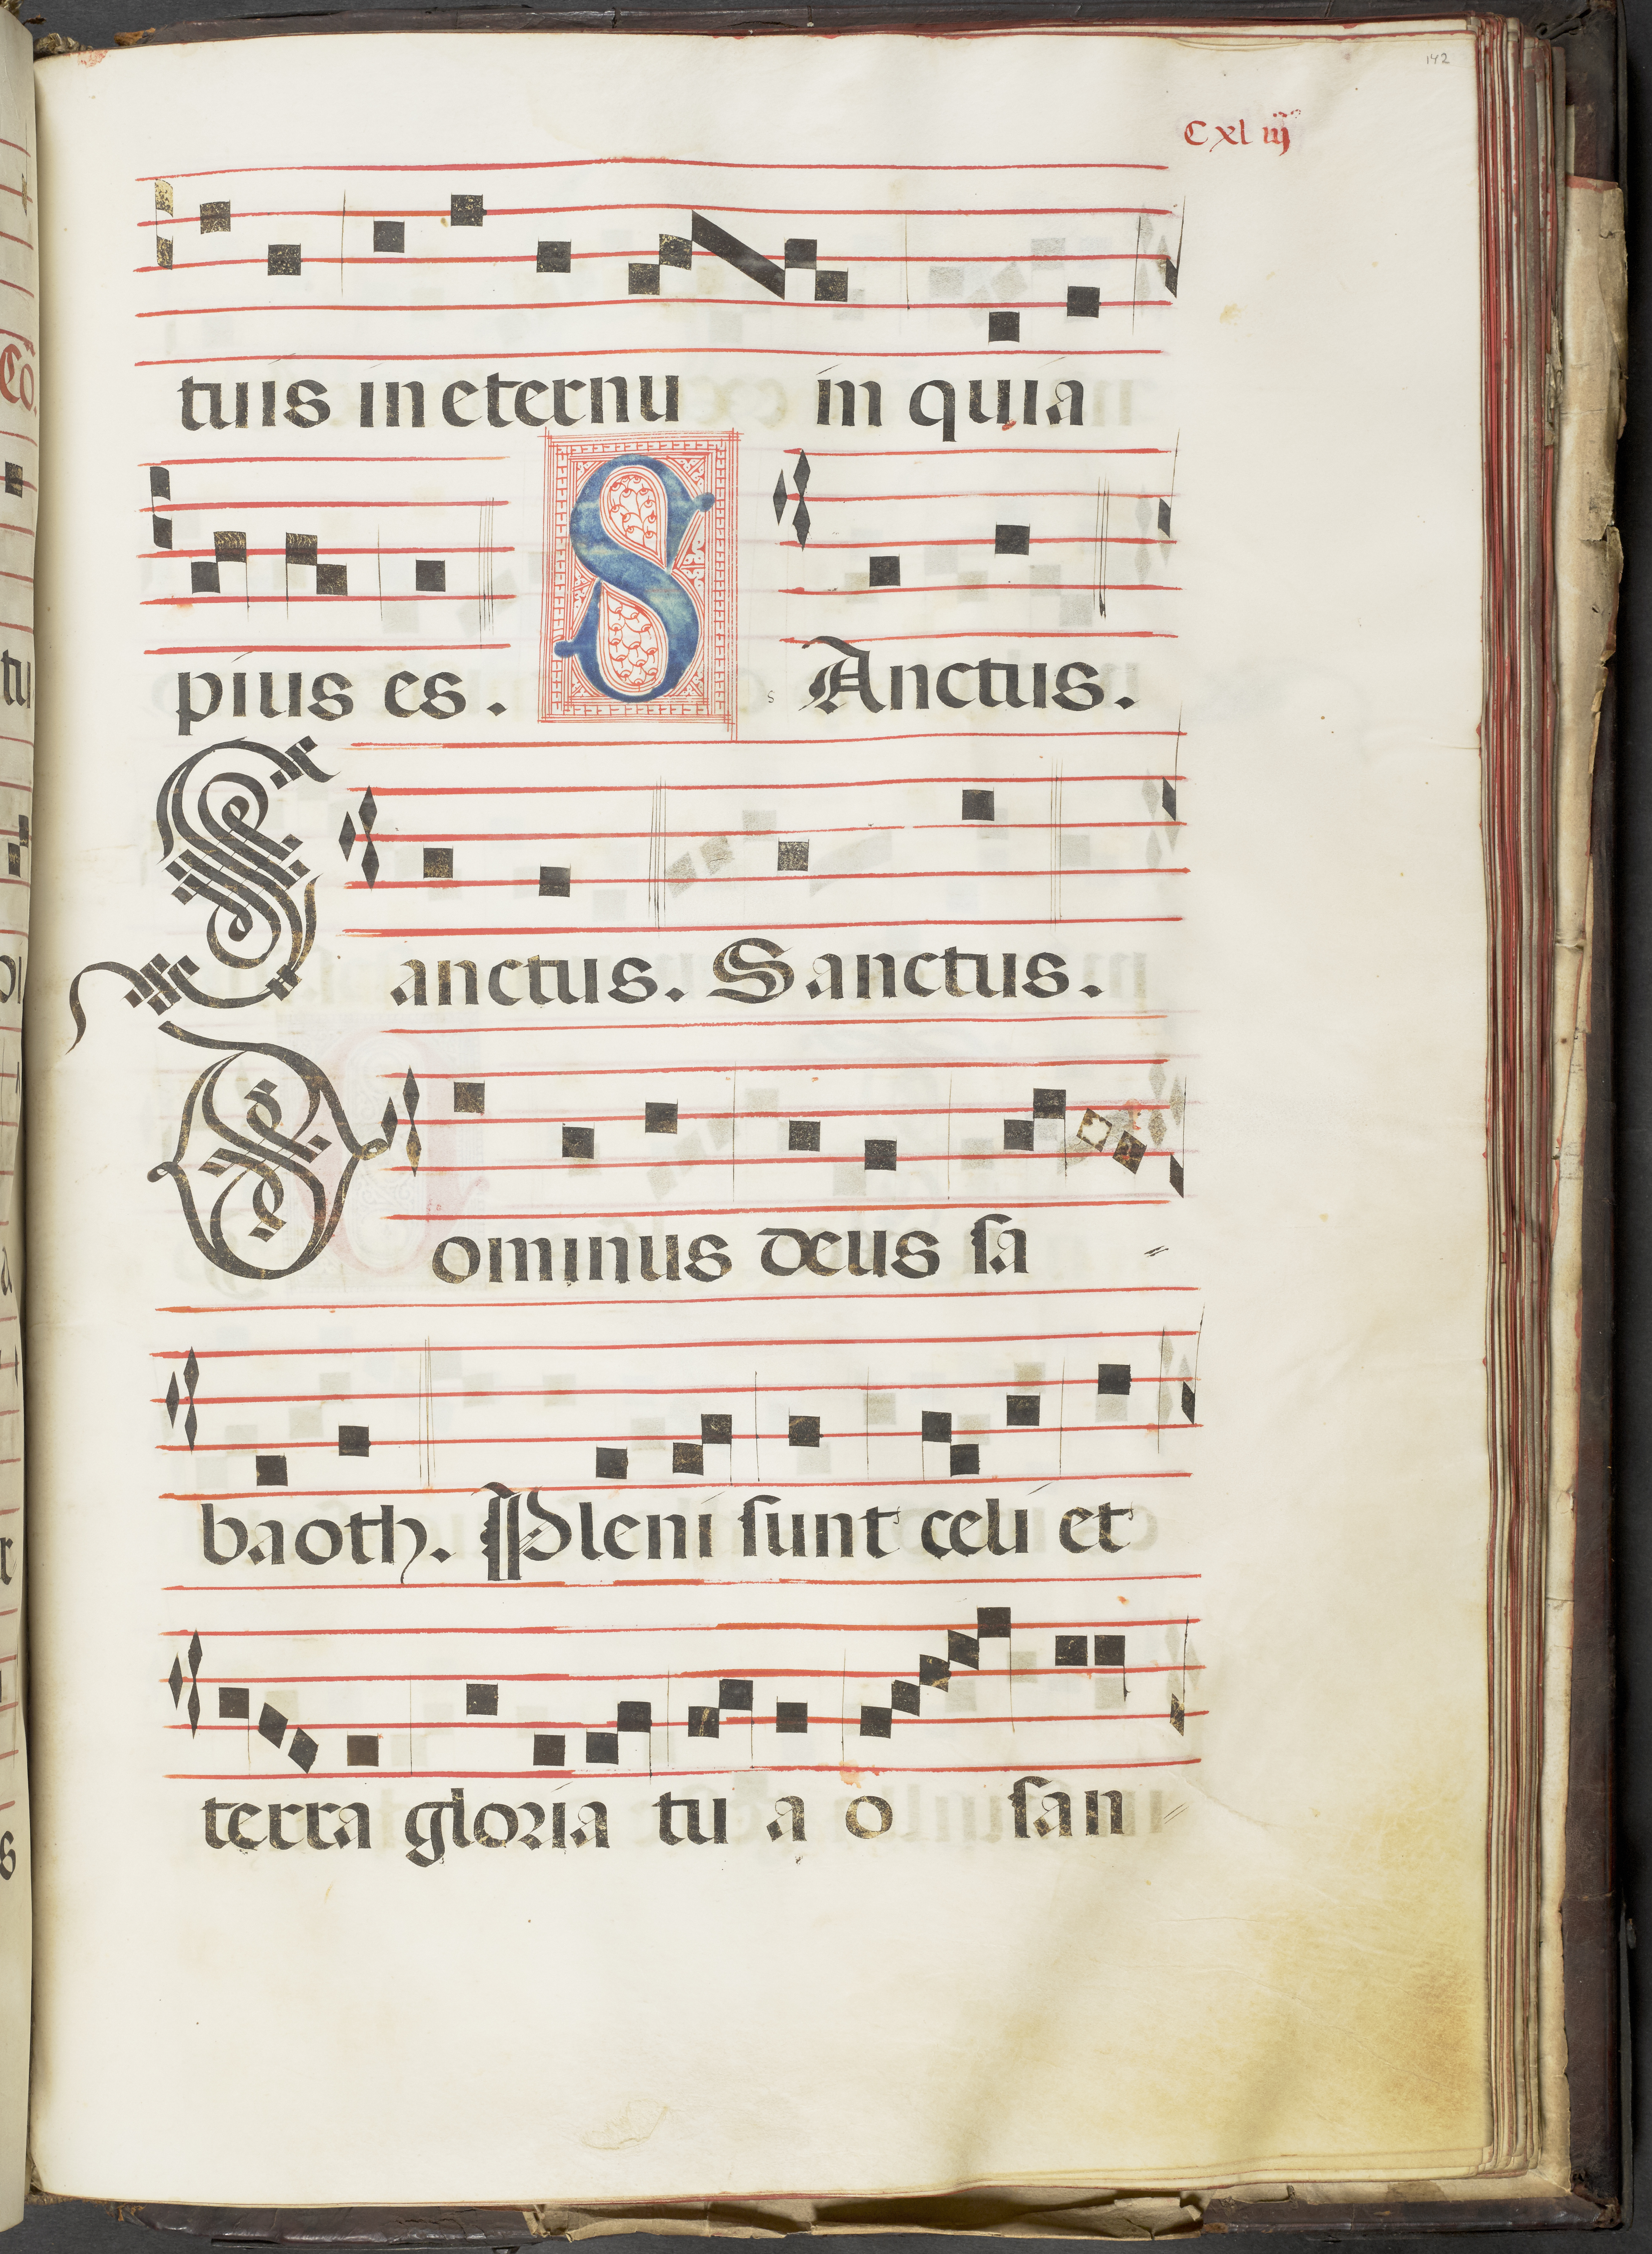 142
Cxliij
tuis in eternu in quia
pius es. S s Anctus.
Sanctus. Sanctus.
Dominus deus sa
baoth. Pleni sunt celi et
terra gloria tu a o san
Co
tu
s